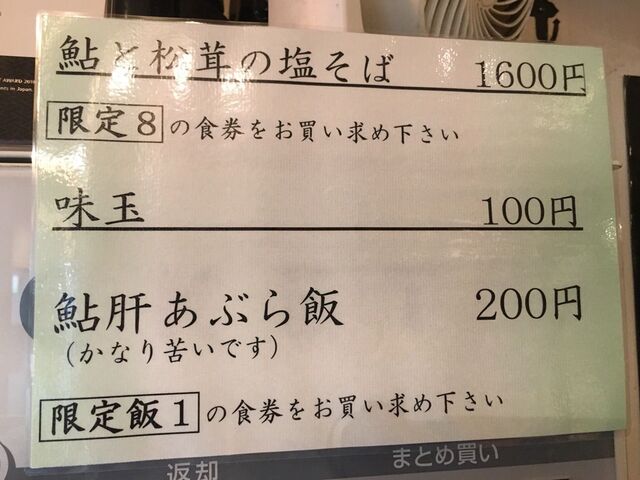 鮎と松茸の塩そば 1600円
限定8の食券をお買い求め下さい
味玉 100円
鮎肝あぶら飯 200円
(かなり苦いです)
限定飯1の食券をお買い求め下さい
返却 まとめ買い